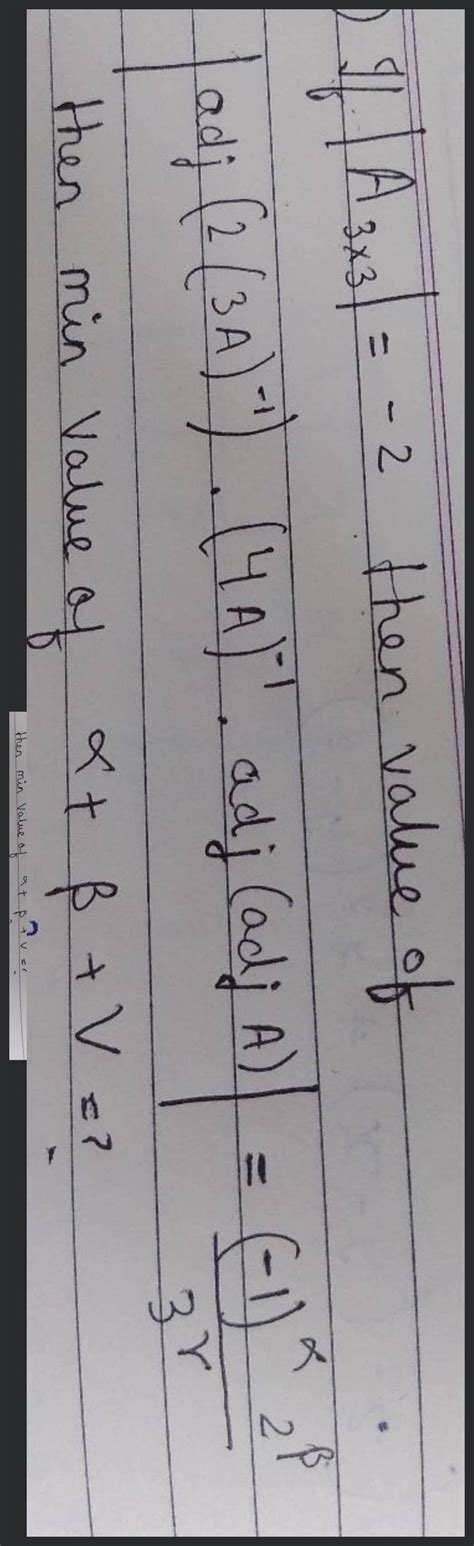 ) If |A₃ₓ₃| = -2 then value of
|adj(2(3A)⁻¹) . (4A)⁻¹ . adj(adj A)| = (-1)^α 2^β / 3^γ
then min value of α + β + γ = ?
then min value of α + β + γ = ?